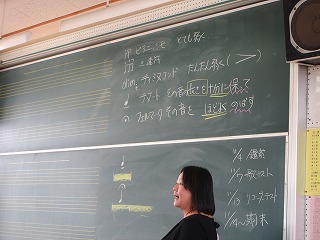 pp ピアニッシモ とても弱く
dim. ディミヌエンド だんだん弱く(＞)
テヌート その音の長さを十分に保って
フェルマータ その音を ほどよく のばす
11/4 鑑賞
11/7 歌テスト
11/13 リコーダーテスト
11/14〜期末